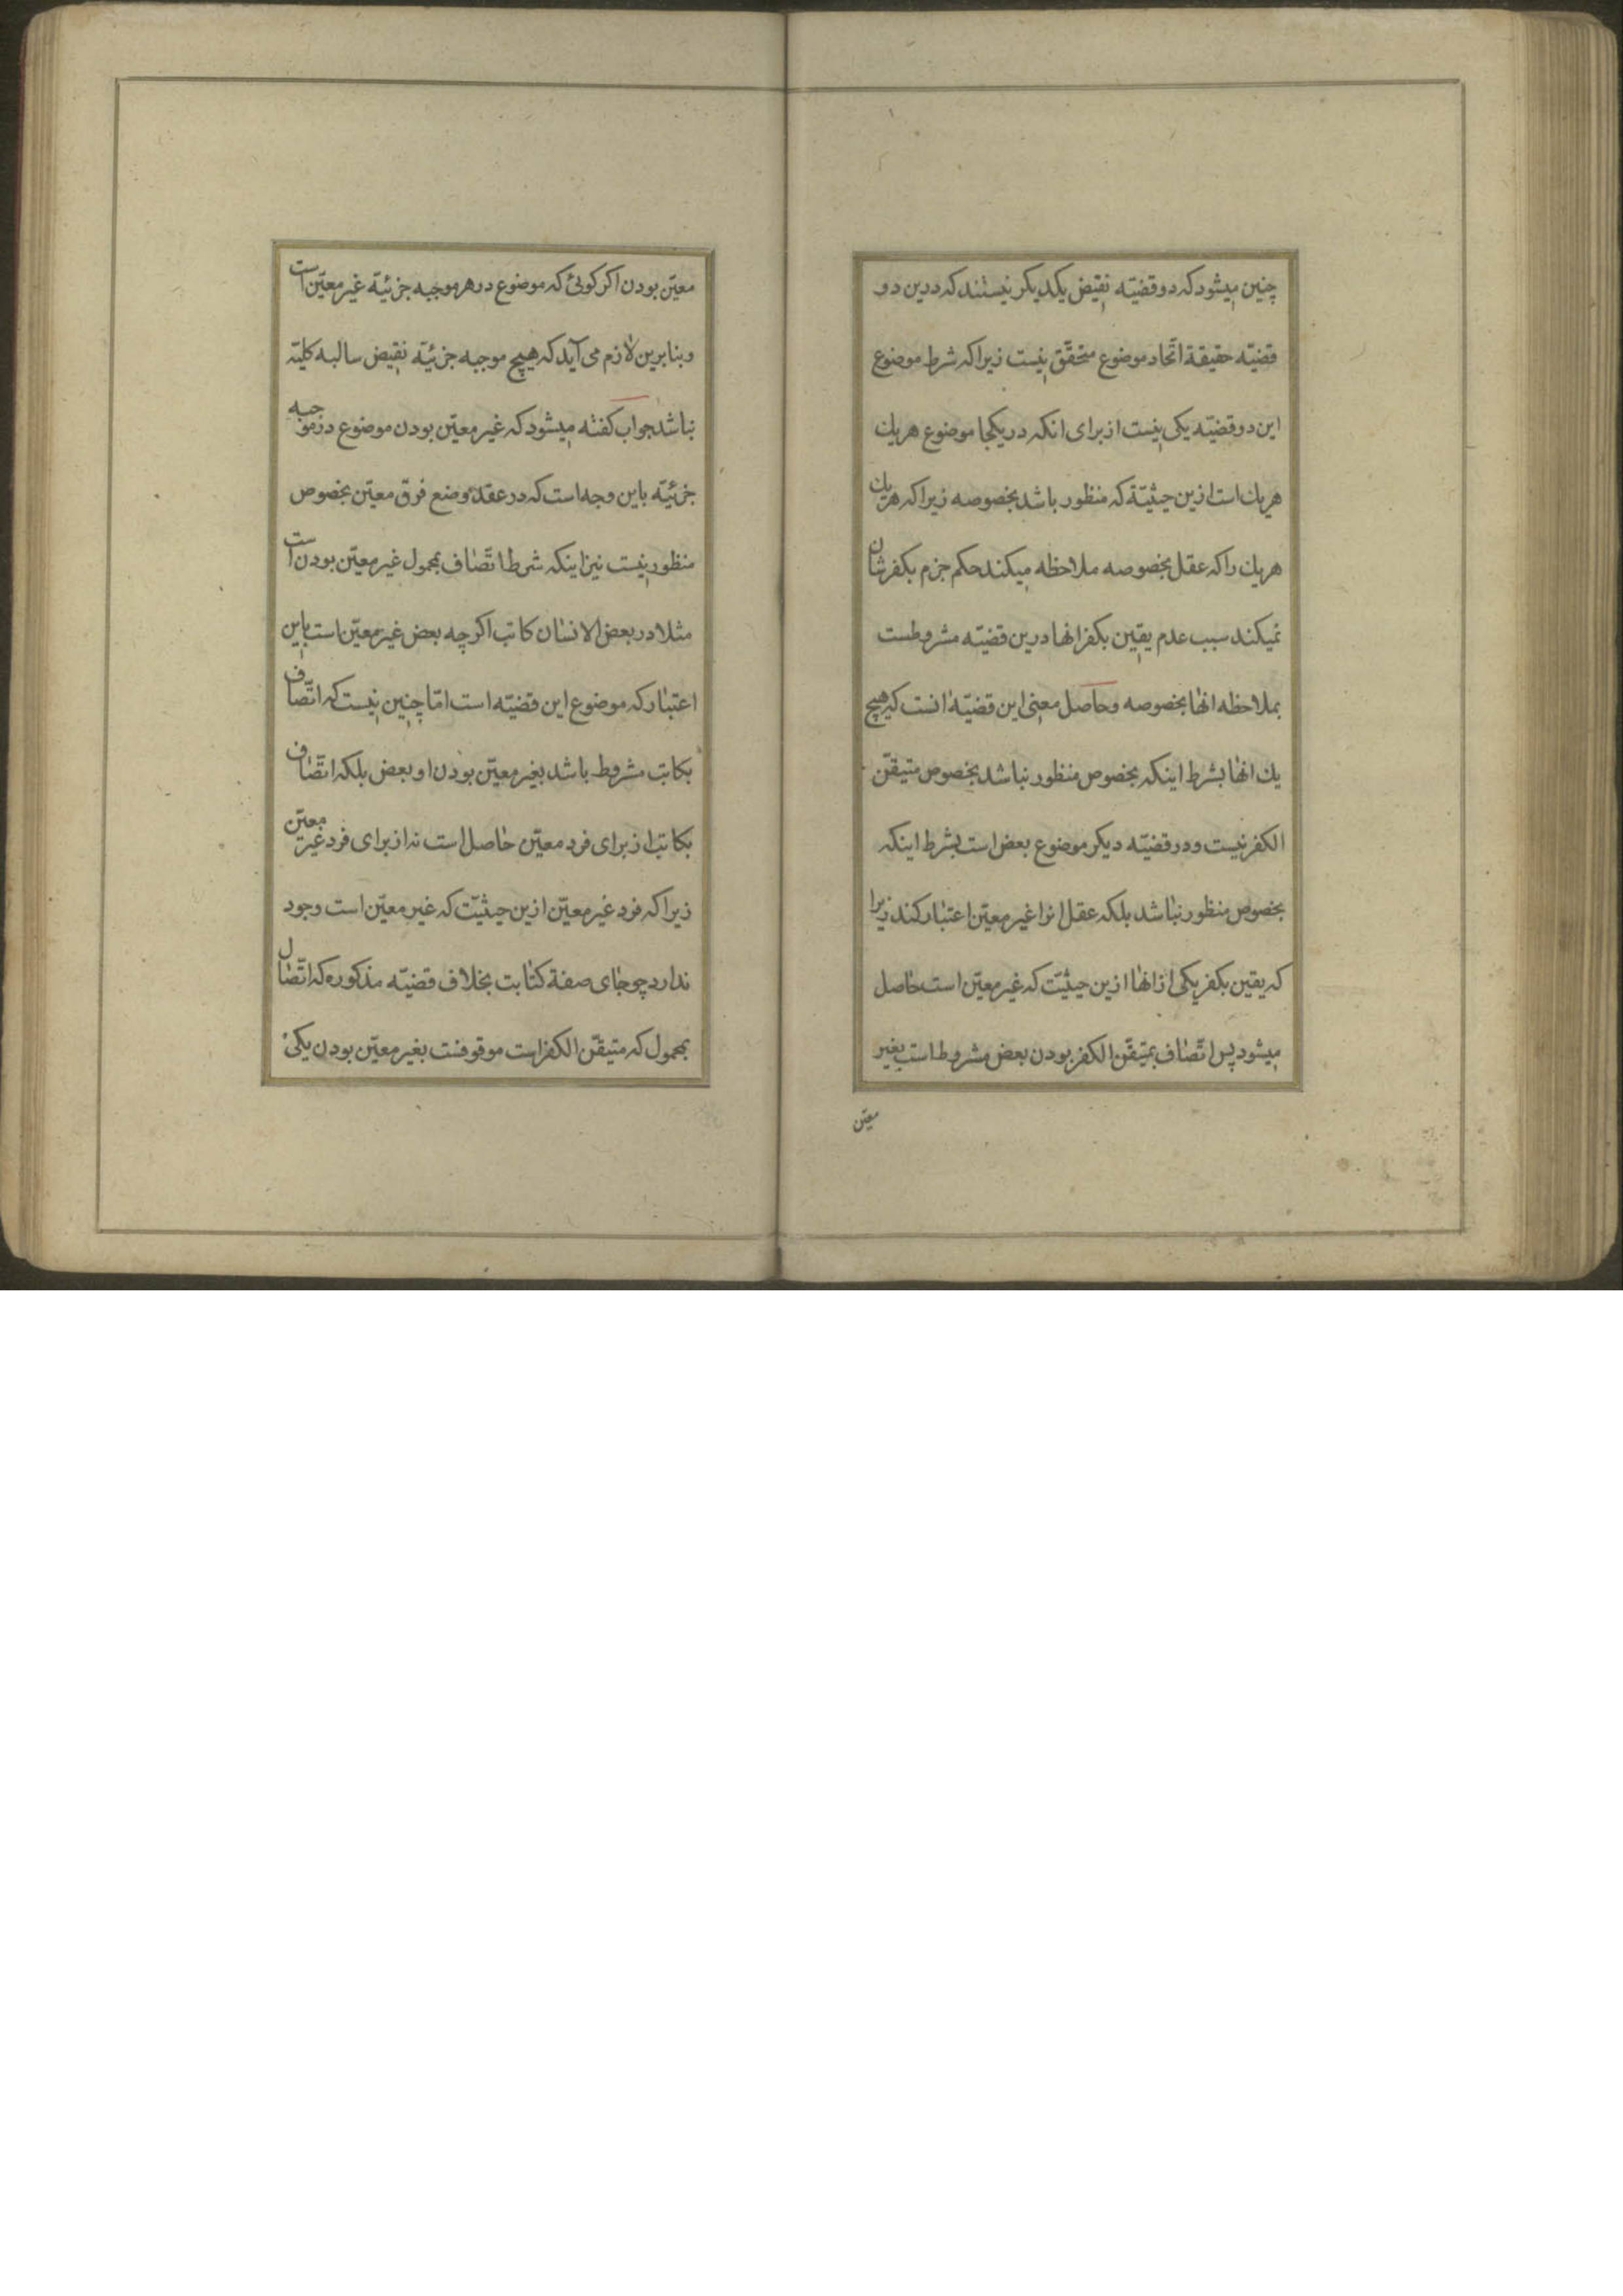 چنین میشود که دو قضیّه نقیض یکدیکر نیستند که درین دو
قضیّه حقیقة اتّحاد موضوع متحقّق نیست زیرا که شرط موضوع
این دو قضیّه یکی نیست از برای انکه در یکجا موضوع هر یك
هر یك است ازین حیثیّة که منظور باشد بخصوصه زیرا که هر یك
هر یك را که عقل بخصوصه ملاحظه میکند حکم جزم بکفرشان
نمیکند سبب عدم یقین بکفر انها درین قضیّه مشروطست
بملاحظه انها بخصوصه وحاصل معنی این قضیّه انست که هیچ
یك انها بشرط اینکه بخصوص منظور نباشد بخصوص متیقّن
الکفر نیست و در قضیّه دیکر موضوع بعض است بشرط اینکه
بخصوص منظور نباشد بلکه عقل انرا غیر معیّن اعتبار کند زیرا
که یقین بکفر یکی از انها ازین حیثیّت که غیر معیّن است حاصل
میشود پس اتّصاف بمتیقّن الکفر بودن بعض مشروط است بغیر
معیّن
معیّن بودن اکر کوئی که موضوع در هر موجبه جزئیّه غیر معیّن است
وبنابرین لازم می آید که هیچ موجبه جزئیّه نقیض سالبه کلیّه
نباشد جواب کفته میشود که غیر معیّن بودن موضوع در موجبه
جزئیّه باین وجه است که در عقد وضع فرق معیّن بخصوص
منظور نیست نیز اینکه شرط اتّصاف بمحمول غیر معیّن بودن است
مثلا در بعض الانسان کاتب اکرچه بعض غیر معیّن است باین
اعتبار که موضوع این قضیّه است امّا چنین نیست که اتّصاف
بکاتب مشروط باشد بغیر معیّن بودن او بعض بلکه اتّصاف
بکاتب از برای فرد معیّن حاصل است نه از برای فرد غیر معیّن
زیرا که فرد غیر معیّن ازین حیثیّت که غیر معیّن است وجود
ندارد چو جای صفة کتابت بخلاف قضیّه مذکوره که اتّصال
بمحمول که متیقّن الکفر است موقوفست بغیر معیّن بودن یکی